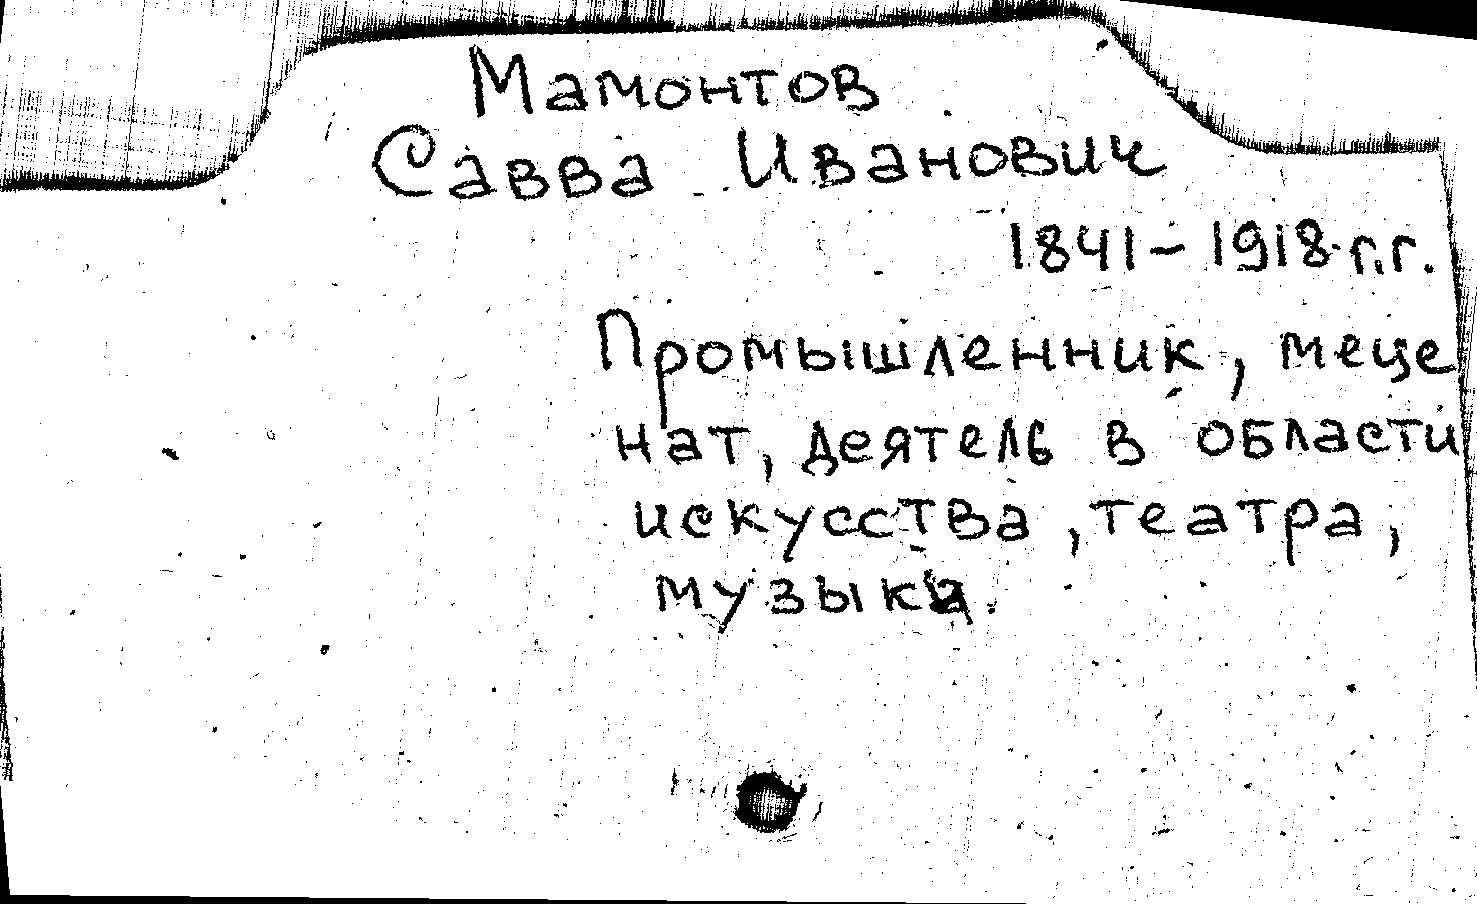 Мамонтов
Савва Иванович
1841-1918 г.г.
Промышленник, меце
нат, деятель в области
искусства, театра,
музыка.